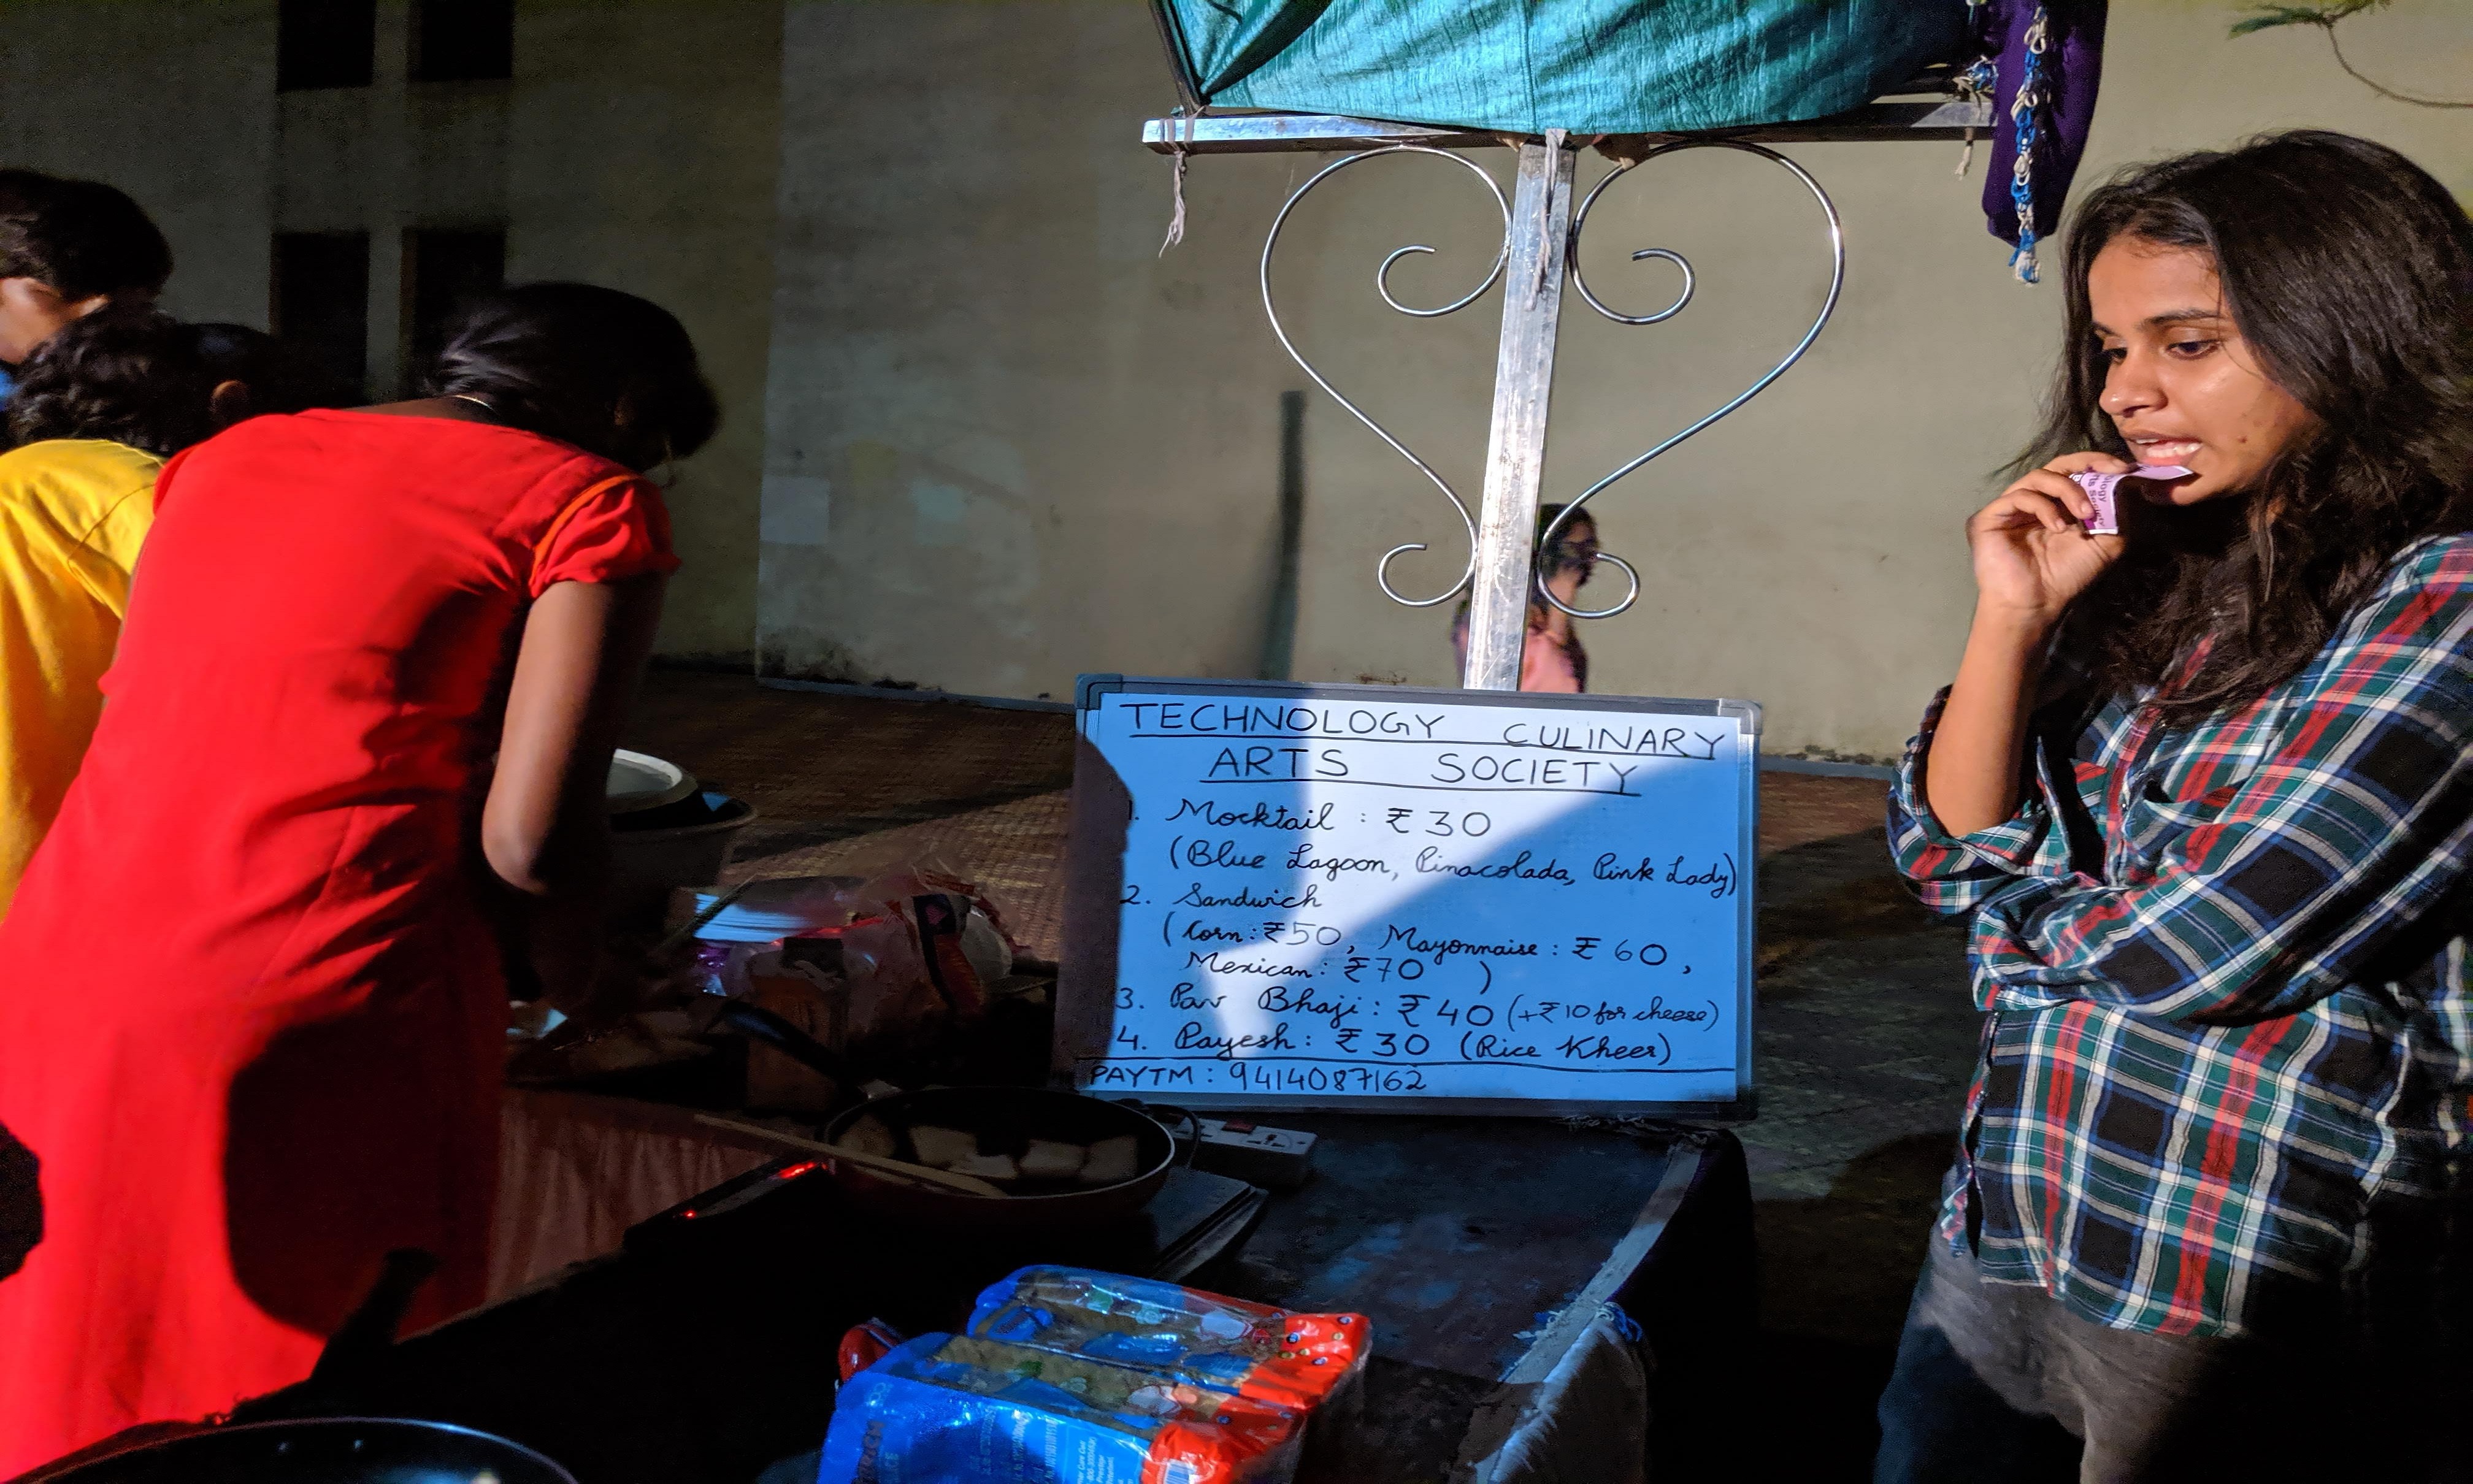 TECHNOLOGY CULINARY
ARTS SOCIETY
1. Mocktail : ₹30
(Blue Lagoon, Pinacolada, Pink Lady)
2. Sandwich
(Corn: ₹50, Mayonnaise : ₹ 60,
Mexican: ₹70 )
3. Pav Bhaji: ₹ 40 (+₹10 for cheese)
4. Payesh: ₹ 30 (Rice Kheer)
PAYTM : 9414087162